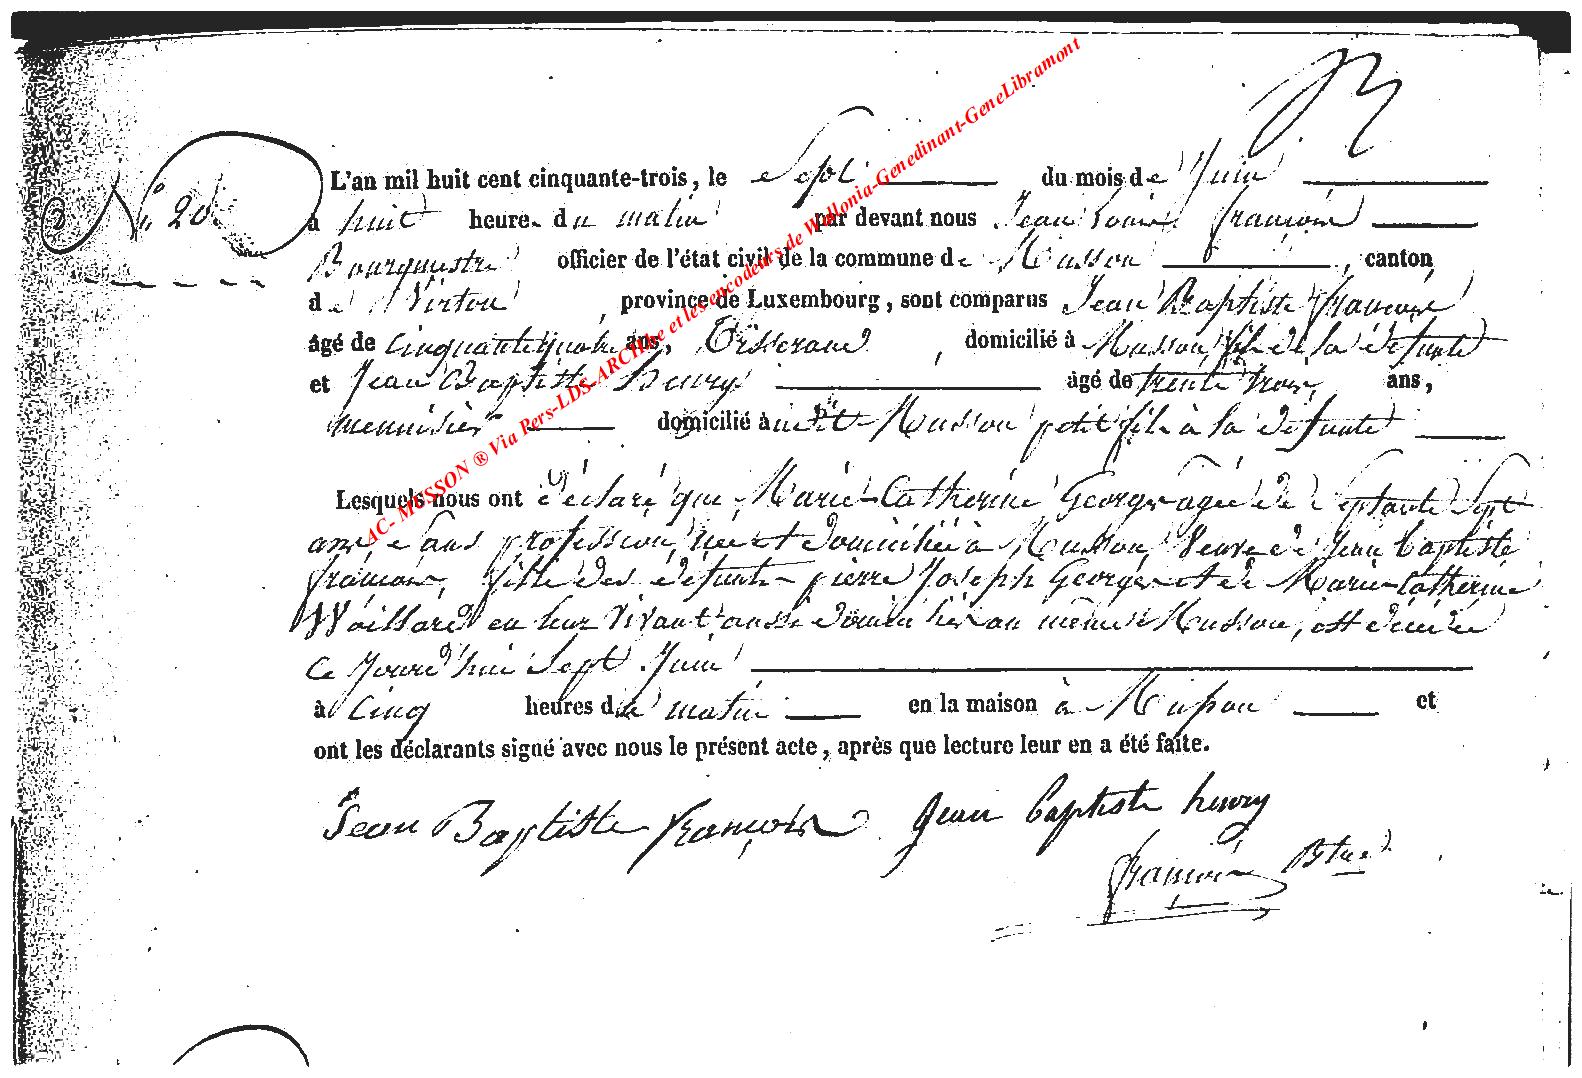 N° 20
L'an mil huit cent cinquante-trois, le Sept du mois de Juin
à huit heure du matin par devant nous Jean Louis françois
Bourgmestre officier de l'état civil de la commune de Musson, canton
de Virton, province de Luxembourg, sont comparus Jean Baptiste françois
âgé de cinquante quatre ans, Tisserand, domicilié à Musson, fils de la défunte
et Jean Baptiste henry âgé de trente trois, ans,
menuisier domicilié à Musson petit fils à la défunte
Lesquels nous ont déclaré que Marie-Catherine Georges agée de Septante Sept
ans, Sans profession, née et domiciliée à Musson, Veuve de Jean baptiste
françois, fille des défunts pierre Joseph Georges et de Marie-Catherine
Waillard en leur vivant aussi domiciliés au même Musson, est décédée
ce jourd'hui Sept Juin
à Cinq heures du matin en la maison à Musson et
ont les déclarants signé avec nous le présent acte, après que lecture leur en a été faite.
Jean Baptiste françois Jean baptiste henry
françois Btre
AC- MUSSON ® Via Pers-LDS-ARCHbe et les encodeurs de Wallonia-Genedinant-GeneLibramont